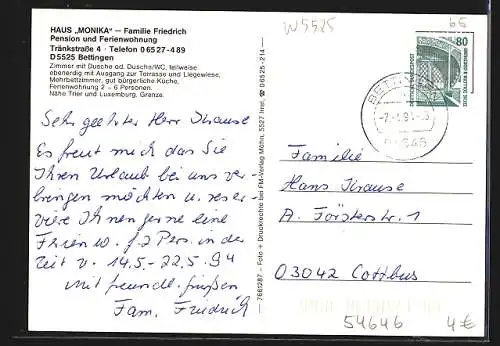 HAUS „MONIKA" — Familie Friedrich
Pension und Ferienwohnung
Tränkstraße 4 · Telefon 0 65 27 - 4 89
D 5525 Bettingen
Zimmer mit Dusche od. Dusche/WC, teilweise
ebenerdig mit Ausgang zur Terrasse und Liegewiese,
Mehrbettzimmer, gut bürgerliche Küche,
Ferienwohnung 2 - 6 Personen.
Nähe Trier und Luxemburg, Grenze.
Sehr geehrter Herr Krause
Es freut mich das Sie
Ihren Urlaub bei uns ver-
bringen möchten u. reser-
viere Ihnen gerne eine
Ferien w. f. 2 Pers. in der
Zeit v. 14.5 - 22.5.94
mit freundl. grüßen
Fam. Friedrich
7661287 - Foto + Druckrechte bei FM-Verlag Möhn, 5527 Irrel, ☎ 0 65 25 - 214
W5525
65
80
Familie
Hans Krause
A. Försterstr. 1
03042 Cottbus
54646
4€